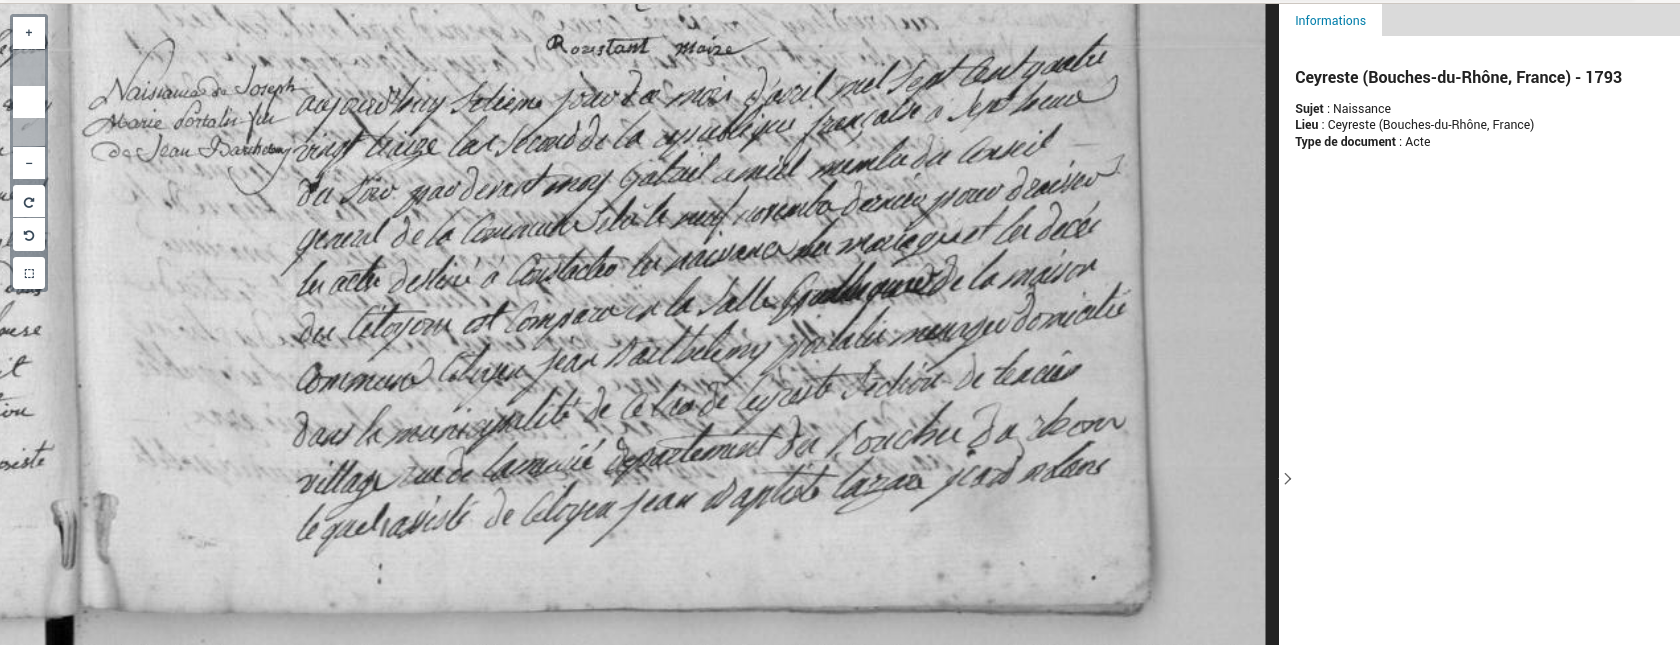 Roustant maire
Naissance de Joseph
Marie portalis fils
de Jean Barthelemy
aujourd'huy setieme jour du mois d'avril mil sept cent quatre
vingt traize lan second de la republique française a sept heure
du soir par devant moy amiel membre du conseil
general de la commune elu le neuf novembre dernier pour draisser
les actes destiné à constater les naissance les mariages et les decés
des citoyens est comparu en la salle de la maison
commune citoyen jean barthelemy portalis menager domicilié
dans la municipalité de ceyreste section de
village rue de departement des bouches du rhone
le quel assisté de citoyen jean baptiste lazare
Informations
Ceyreste (Bouches-du-Rhône, France) - 1793
Sujet : Naissance
Lieu : Ceyreste (Bouches-du-Rhône, France)
Type de document : Acte